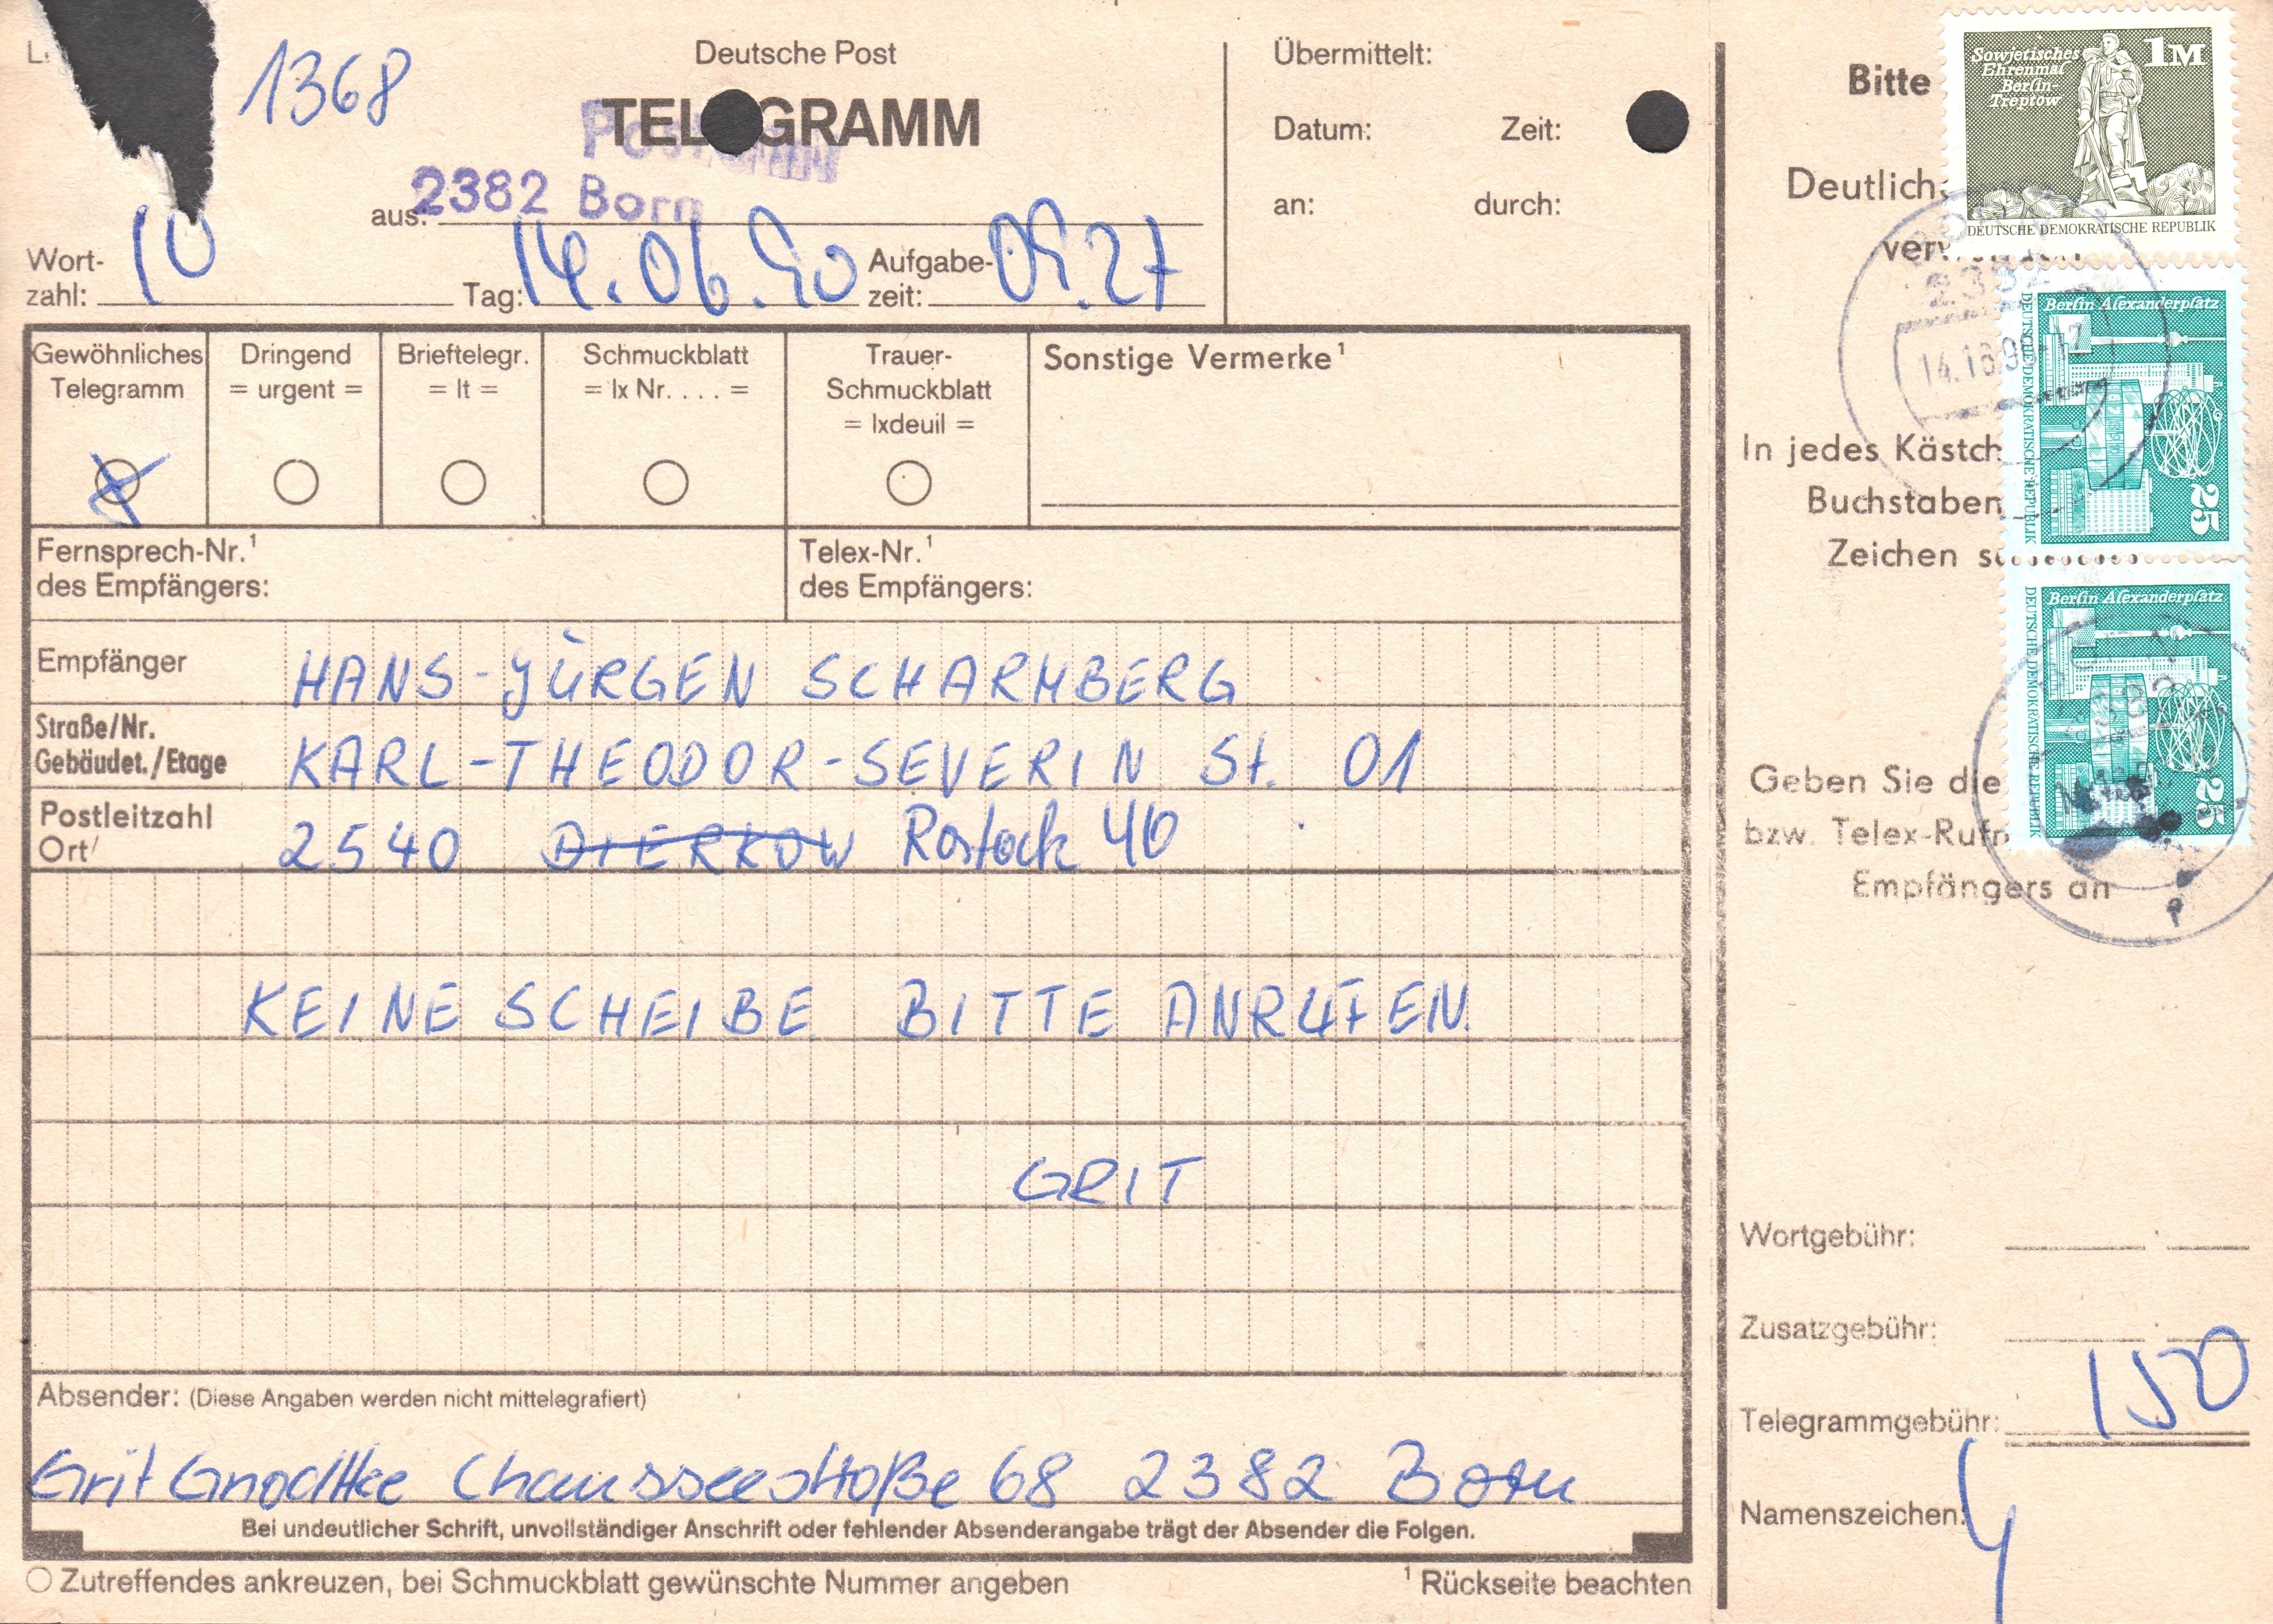 1368
Deutsche Post
TEL GRAMM
2382 Born
aus:
Wort-
zahl: 10
Tag: 14.06.90
Aufgabe-
zeit: 09.27
Übermittelt:
Datum: Zeit:
an: durch:
Gewöhnliches
Telegramm
Dringend
= urgent =
Brieftelegr.
= lt =
Schmuckblatt
= lx Nr. . . . =
Trauer-
Schmuckblatt
= lxdeuil =
Sonstige Vermerke¹
Fernsprech-Nr.¹
des Empfängers:
Telex-Nr.¹
des Empfängers:
Empfänger HANS-JÜRGEN SCHARMBERG
Straße/Nr.
Gebäudet./Etage KARL-THEODOR-SEVERIN St. 01
Postleitzahl
Ort/ 2540 DIERKOW Rostock 40
KEINE SCHEIBE BITTE ANRUFEN.
GRIT
Absender: (Diese Angaben werden nicht mittelegrafiert)
Grit Chausseestraße 68 2382 Born
Bei undeutlicher Schrift, unvollständiger Anschrift oder fehlender Absenderangabe trägt der Absender die Folgen.
Zutreffendes ankreuzen, bei Schmuckblatt gewünschte Nummer angeben
¹ Rückseite beachten
Bitte
Deutlich
In jedes Kästch
Buchstaben
Zeichen
Geben Sie die
bzw. Telex-Rufn
Empfängers an
Sowjetisches
Ehrenmal
Berlin-
Treptow
1M
DEUTSCHE DEMOKRATISCHE REPUBLIK
2382
Berlin Alexanderplatz
DEUTSCHE DEMOKRATISCHE REPUBLIK
25
Berlin Alexanderplatz
DEUTSCHE DEMOKRATISCHE REPUBLIK
25
Wortgebühr:
Zusatzgebühr:
Telegrammgebühr: 150
Namenszeichen: